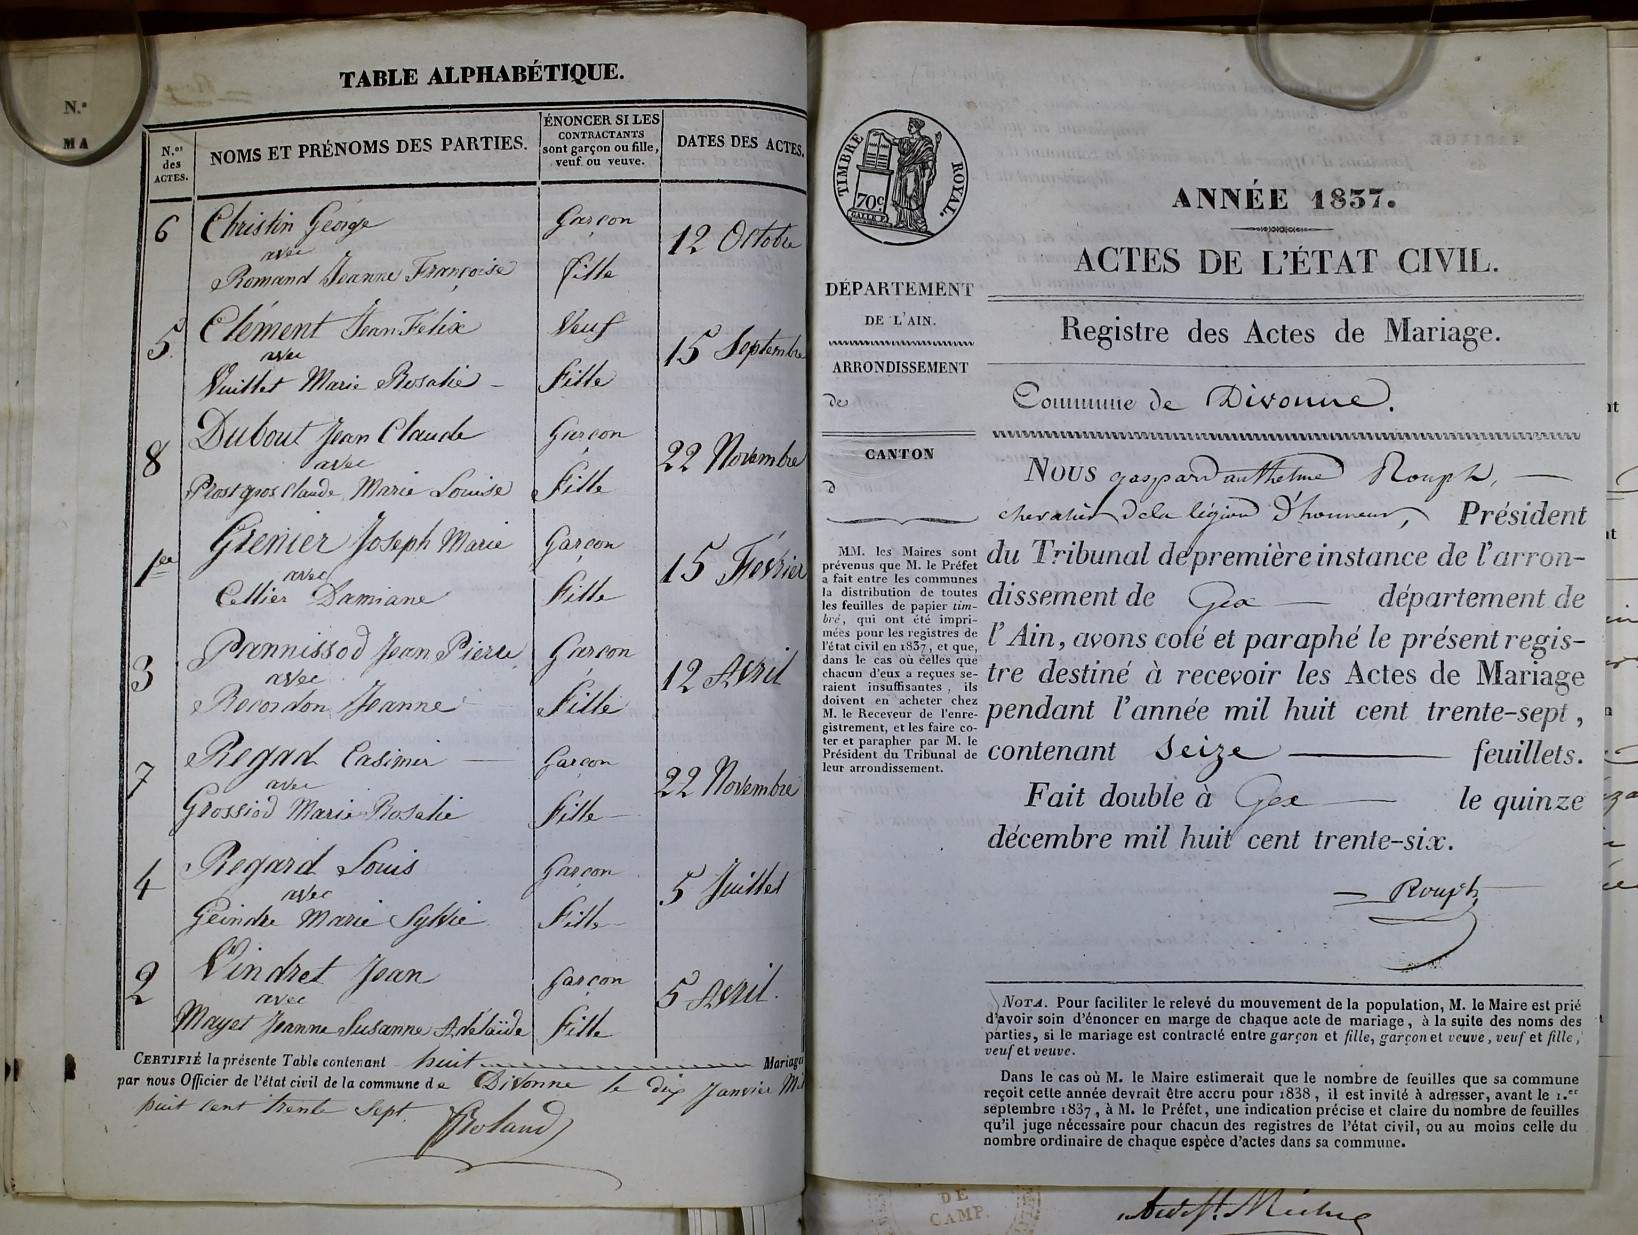 N.º
MA
TABLE ALPHABÉTIQUE.
N.os des ACTES.
NOMS ET PRÉNOMS DES PARTIES.
ÉNONCER SI LES CONTRACTANTS sont garçon ou fille, veuf ou veuve.
DATES DES ACTES.
6 Christin George Garçon 12 Octobre
avec
Romand Jeanne Françoise fille
5. Clément Jean Félix Veuf 15 Septembre
avec
Vuillet Marie Rosalie – Fille
8 Dubout Jean Claude Garçon 22 Novembre
avec
Prost gros Claude Marie Louise Fille
1er Grenier Joseph Marie Garçon 15 Février
avec
Cellier Damiane Fille
3 Pannissod Jean Pierre Garçon 12 Avril
avec
Recordon Jeanne Fille
7 Regad Casimir — Garçon 22 Novembre
avec
Grossiod Marie Rosalie Fille –
4 Regard Louis Garçon 5 Juillet
avec
Geindre Marie Sylvie Fille –
2 Vindret Jean Garçon 5 Avril.
avec
Mayet Jeanne Susanne Adélaïde Fille
CERTIFIÉ la présente Table contenant huit Mariages
par nous Officier de l'état civil de la commune de Divonne le dix Janvier Mil
huit cent trente sept.
Roland
TIMBRE ROYAL.
70 c.
DÉPARTEMENT
DE L'AIN.
ARRONDISSEMENT
de
CANTON
d
MM. les Maires sont
prévenus que M. le Préfet
a fait entre les communes
la distribution de toutes
les feuilles de papier tim-
bré, qui ont été impri-
mées pour les registres de
l'état civil en 1837, et que,
dans le cas où celles que
chacun d'eux a reçues se-
raient insuffisantes, ils
doivent en acheter chez
M. le Receveur de l'enre-
gistrement, et les faire co-
ter et parapher par M. le
Président du Tribunal de
leur arrondissement.
ANNÉE 1837.
ACTES DE L'ÉTAT CIVIL.
Registre des Actes de Mariage.
Commune de Divonne.
NOUS gaspard anthelme Rouph, —
chevalier de la légion d'honneur, Président
du Tribunal de première instance de l'arron-
dissement de Gex — département de
l'Ain, avons coté et paraphé le présent regis-
tre destiné à recevoir les Actes de Mariage
pendant l'année mil huit cent trente-sept,
contenant seize — feuillets.
Fait double à Gex — le quinze
décembre mil huit cent trente-six.
— Rouph
NOTA. Pour faciliter le relevé du mouvement de la population, M. le Maire est prié
d'avoir soin d'énoncer en marge de chaque acte de mariage, à la suite des noms des
parties, si le mariage est contracté entre garçon et fille, garçon et veuve, veuf et fille,
veuf et veuve.
Dans le cas où M. le Maire estimerait que le nombre de feuilles que sa commune
reçoit cette année devrait être accru pour 1838, il est invité à adresser, avant le 1.er
septembre 1837, à M. le Préfet, une indication précise et claire du nombre de feuilles
qu'il juge nécessaire pour chacun des registres de l'état civil, ou au moins celle du
nombre ordinaire de chaque espèce d'actes dans sa commune.
DE
CAMP.